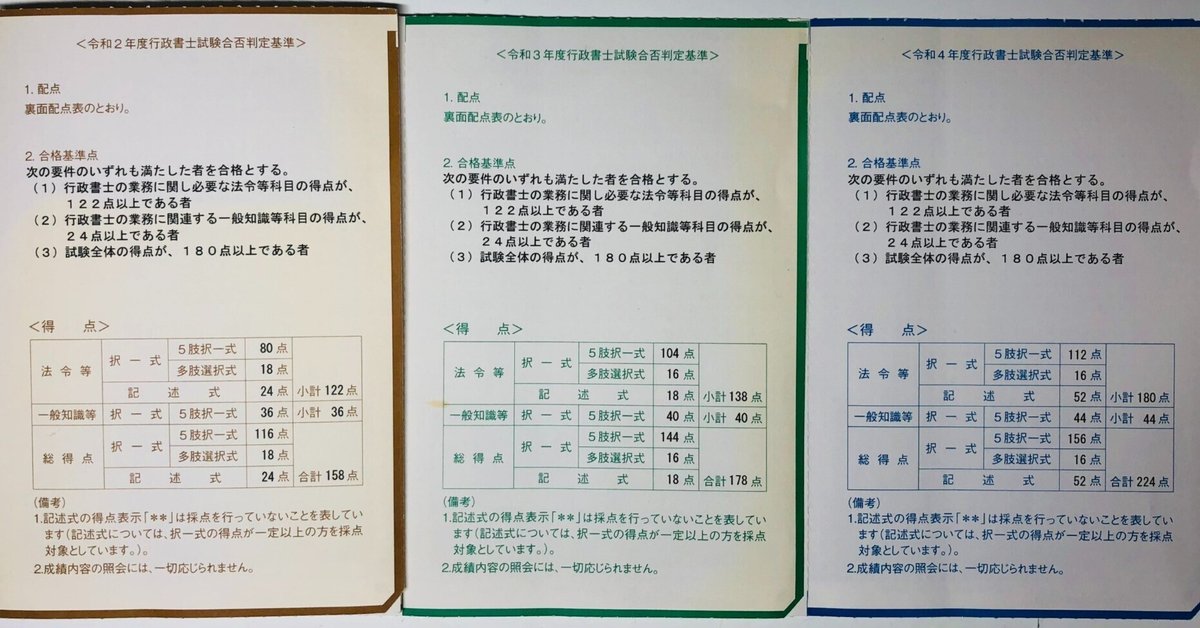 <令和2年度行政書士試験合否判定基準>
1. 配点
裏面配点表のとおり。
2. 合格基準点
次の要件のいずれも満たした者を合格とする。
(1)行政書士の業務に関し必要な法令等科目の得点が、
122点以上である者
(2)行政書士の業務に関連する一般知識等科目の得点が、
24点以上である者
(3)試験全体の得点が、180点以上である者
<得　点>
法令等 択一式 5肢択一式 80点
多肢選択式 18点
記述式 24点 小計122点
一般知識等 択一式 5肢択一式 36点 小計 36点
総得点 択一式 5肢択一式 116点
多肢選択式 18点
記述式 24点 合計158点
(備考)
1.記述式の得点表示「**」は採点を行っていないことを表してい
ます(記述式については、択一式の得点が一定以上の方を採点
対象としています。)。
2.成績内容の照会には、一切応じられません。
<令和3年度行政書士試験合否判定基準>
1. 配点
裏面配点表のとおり。
2. 合格基準点
次の要件のいずれも満たした者を合格とする。
(1)行政書士の業務に関し必要な法令等科目の得点が、
122点以上である者
(2)行政書士の業務に関連する一般知識等科目の得点が、
24点以上である者
(3)試験全体の得点が、180点以上である者
<得　点>
法令等 択一式 5肢択一式 104点
多肢選択式 16点
記述式 18点 小計138点
一般知識等 択一式 5肢択一式 40点 小計 40点
総得点 択一式 5肢択一式 144点
多肢選択式 16点
記述式 18点 合計178点
(備考)
1.記述式の得点表示「**」は採点を行っていないことを表してい
ます(記述式については、択一式の得点が一定以上の方を採点
対象としています。)。
2.成績内容の照会には、一切応じられません。
<令和4年度行政書士試験合否判定基準>
1. 配点
裏面配点表のとおり。
2. 合格基準点
次の要件のいずれも満たした者を合格とする。
(1)行政書士の業務に関し必要な法令等科目の得点が、
122点以上である者
(2)行政書士の業務に関連する一般知識等科目の得点が、
24点以上である者
(3)試験全体の得点が、180点以上である者
<得　点>
法令等 択一式 5肢択一式 112点
多肢選択式 16点
記述式 52点 小計180点
一般知識等 択一式 5肢択一式 44点 小計 44点
総得点 択一式 5肢択一式 156点
多肢選択式 16点
記述式 52点 合計224点
(備考)
1.記述式の得点表示「**」は採点を行っていないことを表してい
ます(記述式については、択一式の得点が一定以上の方を採点
対象としています。)。
2.成績内容の照会には、一切応じられません。